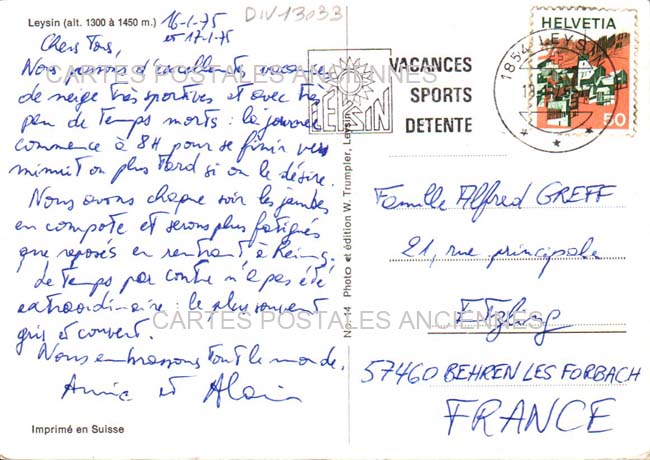 Leysin (alt. 1300 à 1450 m.)
16-1-75
et 17-1-75
DIV-13033
Chers Tous,
Nous vivons d'excellentes vacances
de neige très sportives et avec très
peu de temps morts : la journée
commence à 8H pour se finir vers
minuit ou plus tard si on le désire.
Nous avons chaque soir les jambes
en compote et serons plus fatigués
que reposés en rentrant à Reims.
Le temps par contre n'a pas été
extraordinaire : le plus souvent
gris et couvert.
Nous embrassons tout le monde.
Annie et Alain
Imprimé en Suisse
No. 14 Photo et édition W. Trumpler, Leysin
LEYSIN
VACANCES
SPORTS
DETENTE
1854 LEYSIN
HELVETIA
50
Famille Alfred GREFF
21, rue principale
Etzling
57460 BEHREN LES FORBACH
FRANCE
CARTES POSTALES ANCIENNES
CARTES POSTALES ANCIENNES